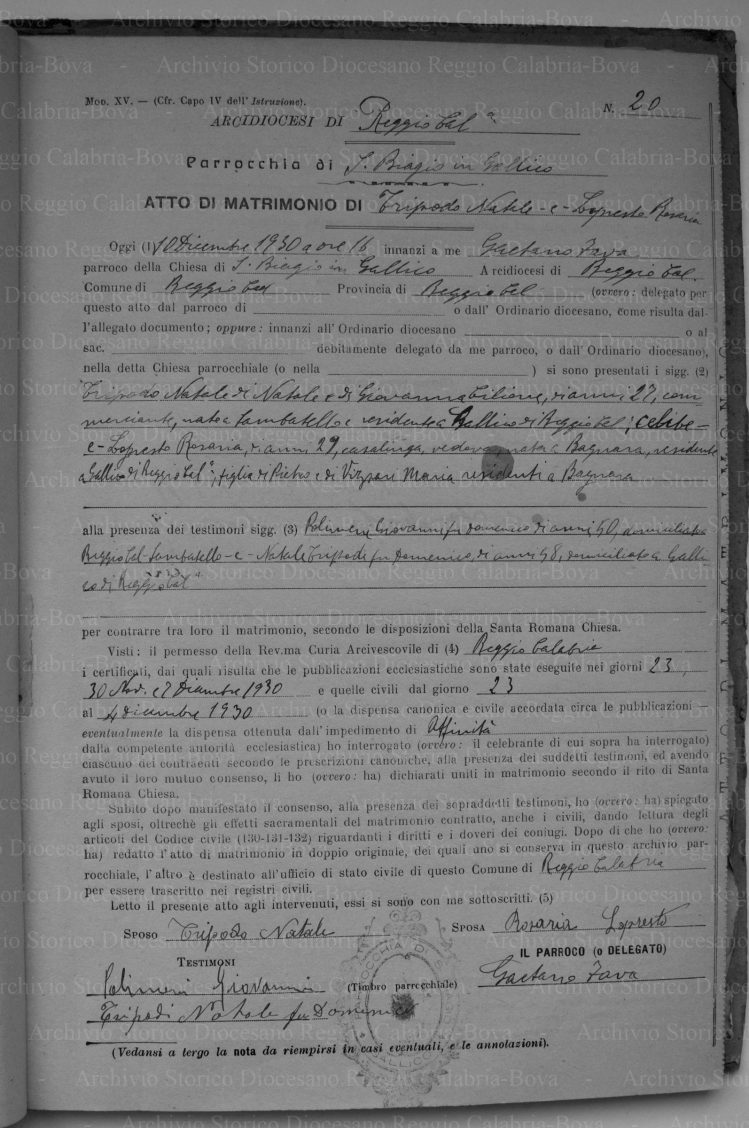 Mod. XV. — (Cfr. Capo IV dell' Istruzione).
N. 20
ARCIDIOCESI DI Reggio Cal.a
Parrocchia di S. Biagio in Gallico
ATTO DI MATRIMONIO DI Tripodo Natale - e - Lopresto Rosaria
Oggi (1) 10 Dicembre 1930 a ore 16 innanzi a me Gaetano Fava
parroco della Chiesa di S. Biagio in Gallico Arcidiocesi di Reggio Cal.
Comune di Reggio Cal Provincia di Reggio Cal (ovvero: delegato per
questo atto dal parroco di o dall' Ordinario diocesano, come risulta dal-
l'allegato documento; oppure: innanzi all' Ordinario diocesano o al
sac. debitamente delegato da me parroco, o dall' Ordinario diocesano),
nella detta Chiesa parrocchiale (o nella ) si sono presentati i sigg. (2)
Tripodo Natale di Natale e di Giovanna Cilione, di anni 27, com
merciante, nato a Sambatello e residente a Gallico di Reggio Cal; celibe =
e - Lopresto Rosaria, di anni 29, casalinga, vedova, nata a Bagnara, residente
a Gallico di Reggio Cal.a, figlia di Pietro e di Maria residenti a Bagnara
alla presenza dei testimoni sigg. (3) Polimeni Giovanni fu Domenico di anni 40, domiciliato
Reggio Cal Sambatello - e - Natale Tripodi fu Domenico, di anni 48, domiciliato a Galli
co di Reggio Cal.a
per contrarre tra loro il matrimonio, secondo le disposizioni della Santa Romana Chiesa.
Visti: il permesso della Rev.ma Curia Arcivescovile di (4) Reggio Calabria
i certificati, dai quali risulta che le pubblicazioni ecclesiastiche sono state eseguite nei giorni 23,
30 Nov. e 7 Dicembre 1930 e quelle civili dal giorno 23
al 4 dicembre 1930 (o la dispensa canonica e civile accordata circa le pubblicazioni —
eventualmente la dispensa ottenuta dall'impedimento di Affinità
dalla competente autorità ecclesiastica) ho interrogato (ovvero: il celebrante di cui sopra ha interrogato)
ciascuno dei contraenti secondo le prescrizioni canoniche, alla presenza dei suddetti testimoni, ed avendo
avuto il loro mutuo consenso, li ho (ovvero: ha) dichiarati uniti in matrimonio secondo il rito di Santa
Romana Chiesa.
Subito dopo manifestato il consenso, alla presenza dei sopraddetti testimoni, ho (ovvero: ha) spiegato
agli sposi, oltrechè gli effetti sacramentali del matrimonio contratto, anche i civili, dando lettura degli
articoli del Codice civile (130-131-132) riguardanti i diritti e i doveri dei coniugi. Dopo di che ho (ovvero:
ha) redatto l'atto di matrimonio in doppio originale, dei quali uno si conserva in questo archivio par-
rocchiale, l'altro è destinato all'ufficio di stato civile di questo Comune di Reggio Calabria
per essere trascritto nei registri civili.
Letto il presente atto agli intervenuti, essi si sono con me sottoscritti. (5)
SPOSO Tripodo Natale SPOSA Rosaria Lopresto
TESTIMONI IL PARROCO (o DELEGATO)
Polimeni Giovanni (Timbro parrocchiale) Gaetano Fava
Tripodi Natale fu Domenico
(Vedansi a tergo la nota da riempirsi in casi eventuali, e le annotazioni).
Archivio Storico Diocesano Reggio Calabria-Bova